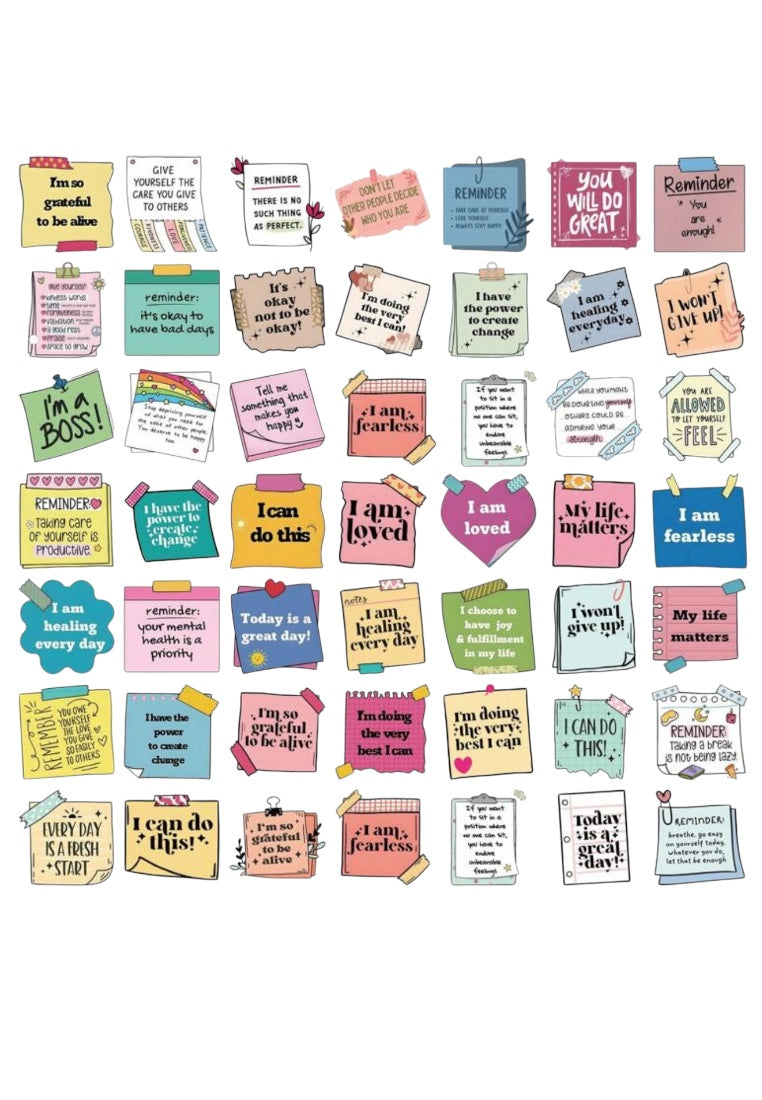 I'm so
grateful
to be alive
GIVE
YOURSELF THE
CARE YOU GIVE
TO OTHERS
COURAGE
KINDNESS
LOVE
FORGIVENESS
PATIENCE
REMINDER
THERE IS NO
SUCH THING
AS PERFECT.
DON'T LET
OTHER PEOPLE DECIDE
WHO YOU ARE
REMINDER
• TAKE CARE OF YOURSELF
• LOVE YOURSELF
• ALWAYS STAY HAPPY
YOU
WILL DO
GREAT
Reminder
You
are
enough!
Give yourself:
kindest words
time
forgiveness
validation
a good rest
praise
space to grow
reminder:
it's okay to
have bad days
It's
okay
not to be
okay!
I'm doing
the very
best I can!
I have
the power
to create
change
I am
healing
everyday
I WON'T
GIVE UP!
I'm a
BOSS!
Stop depriving yourself
of what you need for
the sake of other people.
You deserve to be happy
too
Tell me
something that
makes you
happy
I am
fearless
If you want
to sit in a
position where
no one can sit,
you have to
endure
unbearable
feelings
WHILE YOU MIGHT
BE DOUBTING yourself
OTHERS COULD BE
ADMIRING YOUR
strength
YOU ARE
ALLOWED
TO LET YOURSELF
FEEL
REMINDER
Taking care
of yourself is
PRODUCTIVE.
I have the
power to
create
change
I can
do this
I am
loved
I am
loved
My life
matters
I am
fearless
I am
healing
every day
reminder:
your mental
health is a
priority
Today is a
great day!
notes
I am
healing
every day
I choose to
have joy
& fulfillment
in my life
I won't
give up!
My life
matters
REMEMBER
YOU OWE
YOURSELF
THE LOVE
YOU GIVE
SO EASILY
TO OTHERS
I have the
power
to create
change
I'm so
grateful
to be alive
I'm doing
the very
best I can
I'm doing
the very
best I can
I CAN DO
THIS!
REMINDER:
Taking a break
is not being lazy.
EVERY DAY
IS A FRESH
START
I can do
this!
I'm so
grateful
to be
alive
I am
fearless
If you want
to sit in a
position where
no one can sit,
you have to
endure
unbearable
feelings
Today
is a
great
day!
REMINDER:
breathe, go easy
on yourself today,
whatever you do,
let that be enough